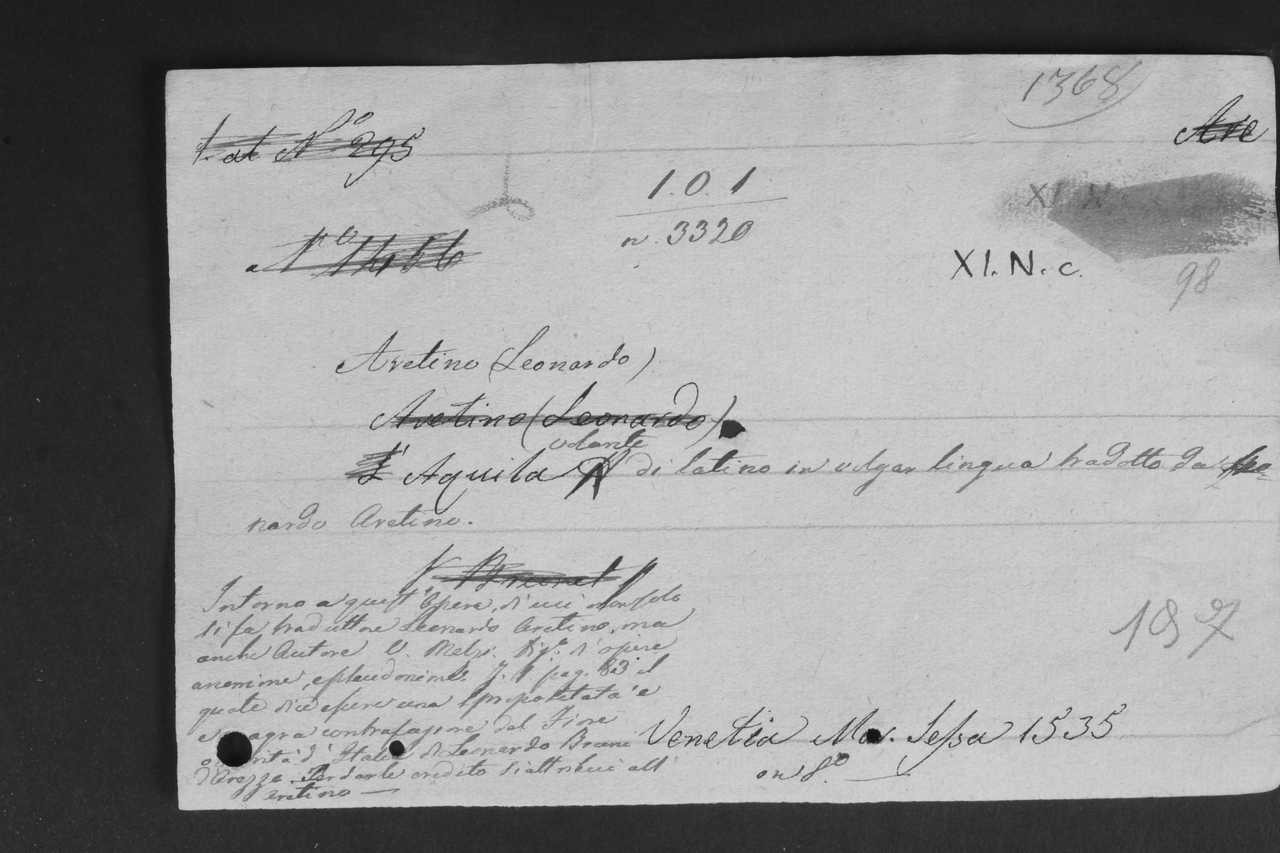 1368
t. at N.° 295
Are
1.0.1
n. 3320
XI. N
XI. N. c.
98
Aretino (Leonardo)
Aretino (Leonardo)
volante
L' Aquila di latino in vulgar lingua tradotto da Leo-
nardo Aretino.
V. Brunet
Intorno a quest'Opera, di cui non solo
si fa traduttore Leonardo Aretino, ma
anche Autore V. Melz. Diz.° d'opere
anonime, e pseudonime T. 1 pag. 83 il
quale dice essere una spropositata e
magra contrafazione del Fiore
d'Italia di Leonardo Bruni
d'Arezzo. Per darle credito si attribuì all'
Aretino —
187
Venetia Mar. Sessa 1535
in 8.°